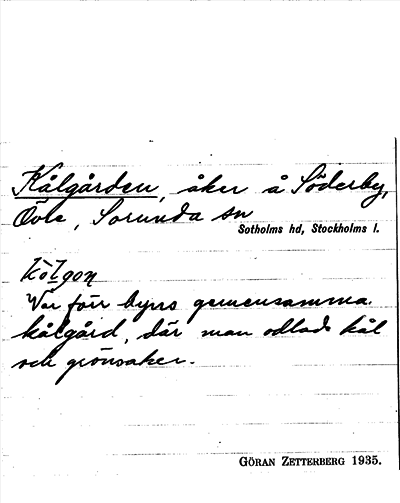 Kålgården, åker å Söderby,
Övle, Sorunda sn
Sotholms hd, Stockholms l.
kö̀lgoṇ
Var förr byns gemensamma
kålgård, där man odlade kål
och grönsaker.
GÖRAN ZETTERBERG 1935.